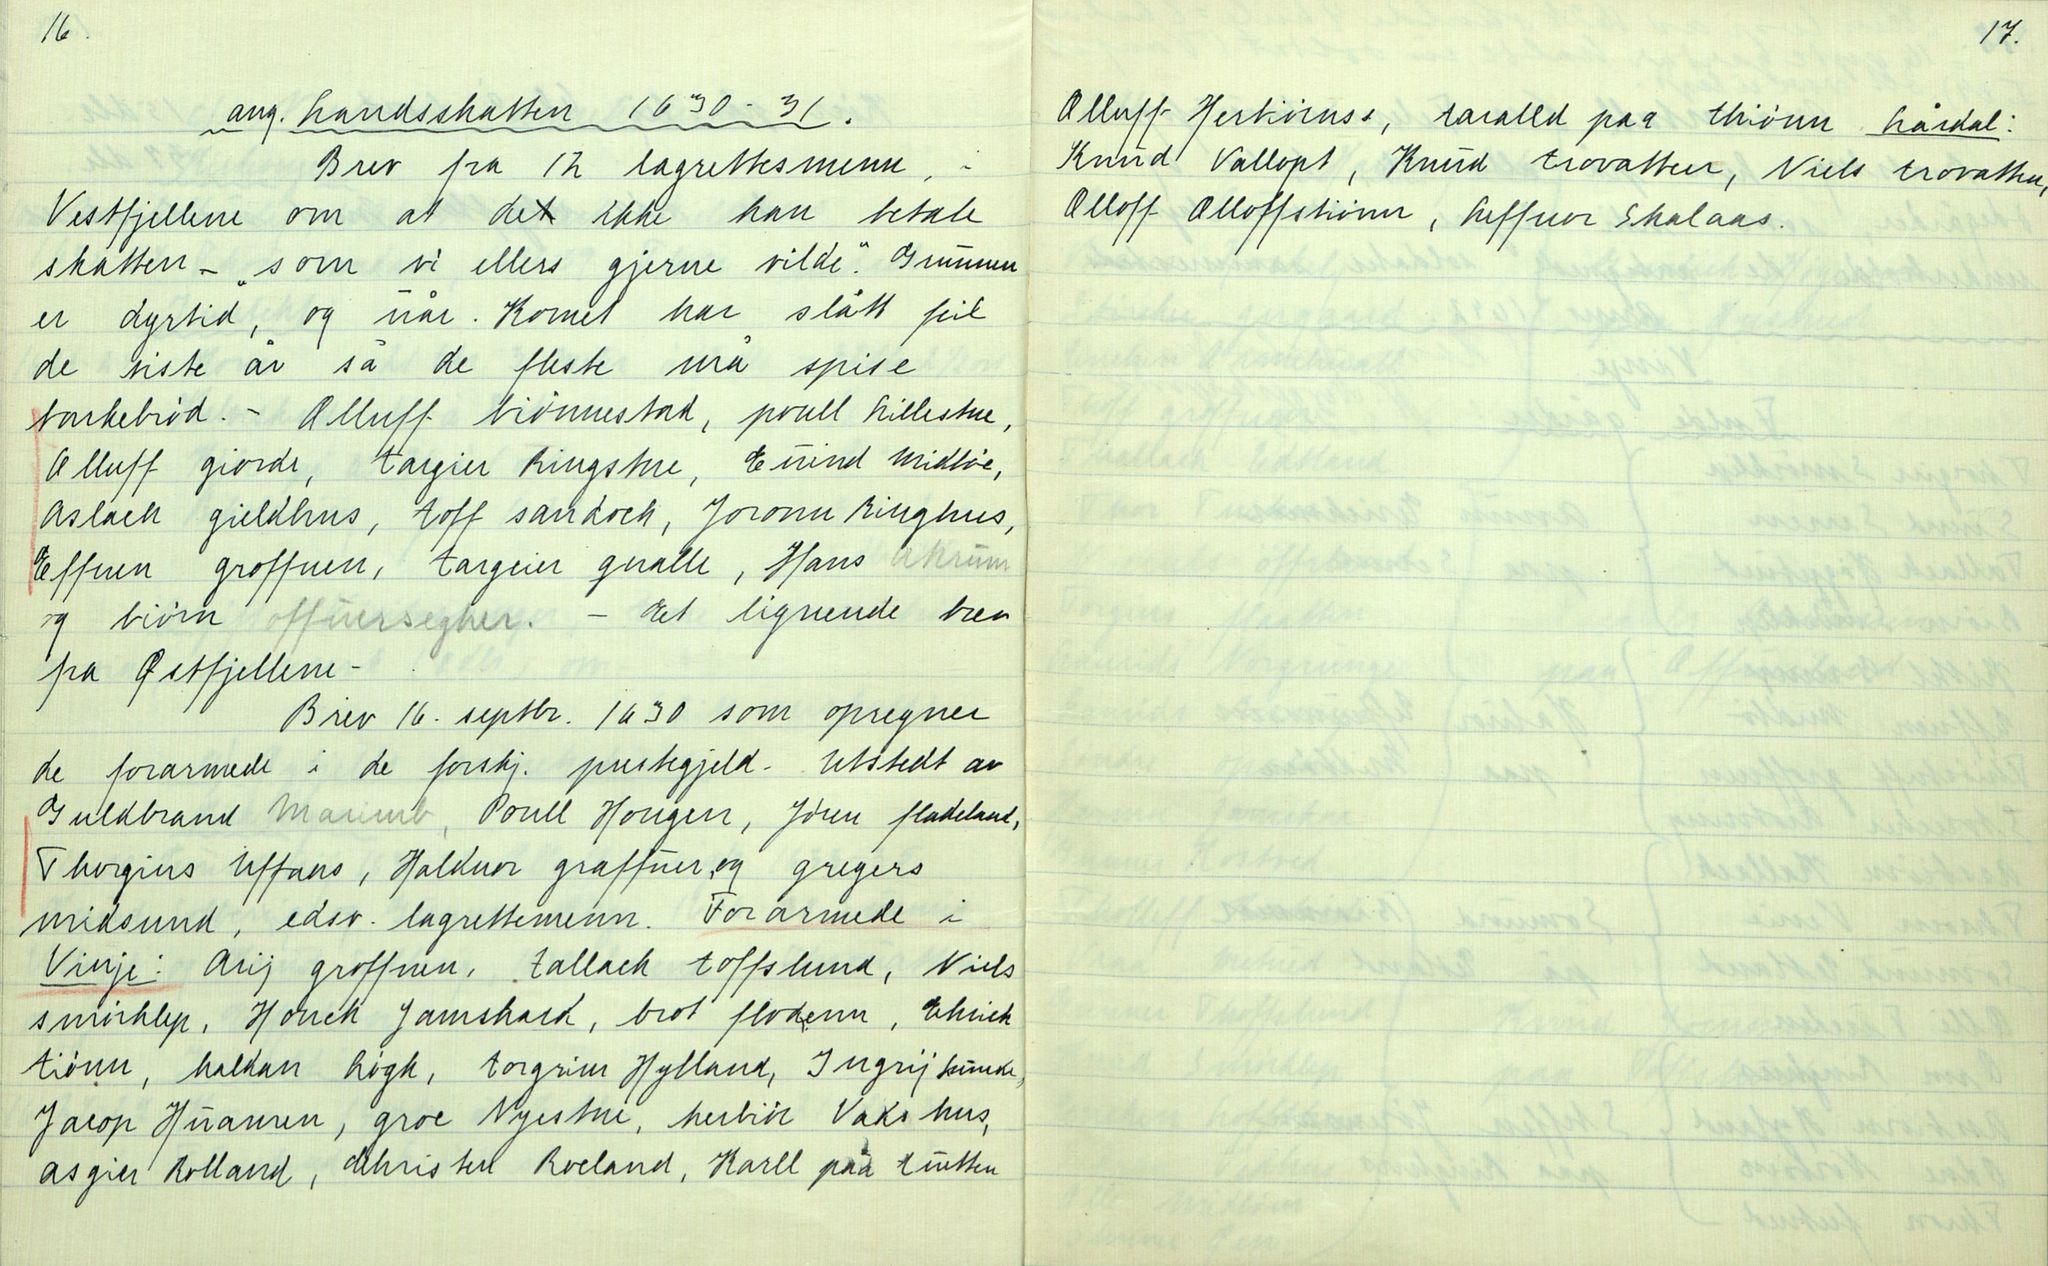 16.
ang. Landsskatten 1630-31.
Brev fra 12 lagrettesmenn, i
Vestfjellene om at det ikke kan betale
skatten - "som vi ellers gjerne vilde". Grunnen
er dyrtid, og uår. Kornet har slått feil
de siste år så de fleste må spise
barkebrød. - Olluff biönnestad, poull Lillestue,
Olluff giorde, targier Ringstue, Euind Midböe,
Aslach gieldhus, toff sandock, Joronn Ringhus,
Effuen groffuen, targeier gualle, Hans Akrum
og biörn offuersegher. - Et lignende brev
fra Østfjellene -
Brev 16. septbr. 1630 som opregner
de forarmede i de forskj. prestegjeld. Utstedt av
Guldbrand Marumb, Poull Hougen, Jören fladeland,
Thorgius Uffaas, Halduor graffuer, og gregers
midsund, edsv. lagrettemenn. Forarmede i
Vinje: Arij groffuen, tallach toffslund, Niels
smörklep, Houch Jamsgard, brot flodenn, Ehrich
tiönn, haldan Högh, torgrim Hylland, Ingrij
Jacop Huamen, groe Nyestue, herbiör Vaks hus,
asgier Rolland, Christen Roeland, Karll paa tuetten
17.
Olluff Herbiörnss, taralld paa thiönn Lårdal:
Knud Vallopt, Knud trovatten, Niels trovatten,
Olloff Olloffstiönn, Leffuor Skalaas.